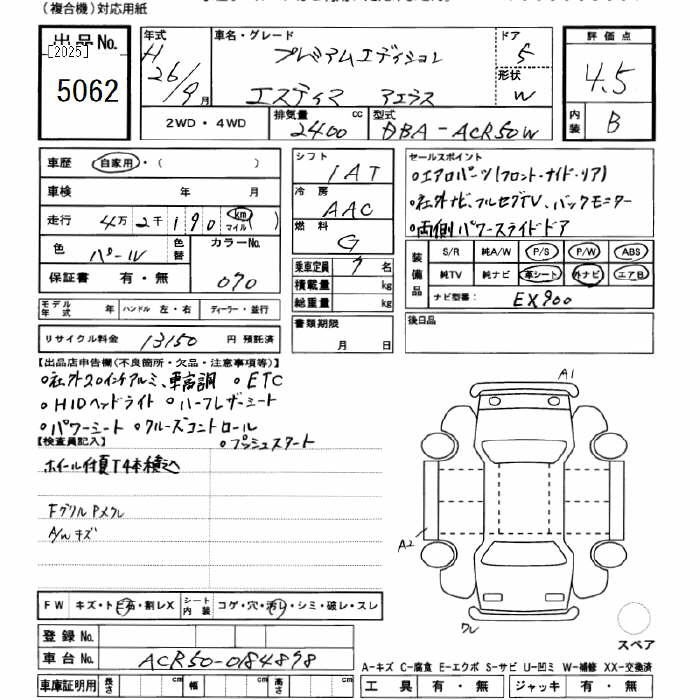 (複合機)対応用紙
出品No.
[2025]
5062
年式
H
26/9月
車名・グレード
プレミアムエディション
エスティマ アエラス
ドア
5
形状
W
評価点
4.5
内装
B
2WD・4WD
排気量 cc
2400
型式
DBA-ACR50W
車歴 自家用・( )
車検 年 月
走行 4万2千190 km マイル( )
色 パール 色替 カラーNo. 070
保証書 有・無
モデル年式 年 ハンドル 左・右 ディーラー・並行
リサイクル料金 13150 円 預託済
シフト
IAT
冷房
AAC
燃料
G
乗車定員 7名
積載量 kg
総重量 kg
書類期限
月 日
セールスポイント
○エアロパーツ(フロント・サイド・リア)
○社外ナビ、フルセグTV、バックモニター
○両側パワースライドドア
装備品
S/R 純A/W P/S P/W ABS
純TV 純ナビ 革シート 外ナビ エアB
ナビ型番: EX900
後日品
【出品店申告欄(不良箇所・欠品・注意事項等)】
○社外20インチアルミ、車高調 ○ETC
○HIDヘッドライト ○ハーフレザーシート
○パワーシート ○クルーズコントロール
○プッシュスタート
【検査員記入】
ホイール付夏T4本積込
Fグリル Pメクレ
A/W キズ
A1
A2
ワレ
スペア
FW キズ・トビ石・割レX シート内装 コゲ・穴・汚レ・シミ・破レ・スレ
登録No.
車台No. ACR50-0184898
車庫証明用 長さ cm 幅 cm 高さ cm
A-キズ C-腐食 E-エクボ S-サビ U-凹ミ W-補修 XX-交換済
工具 有・無 ジャッキ 有・無